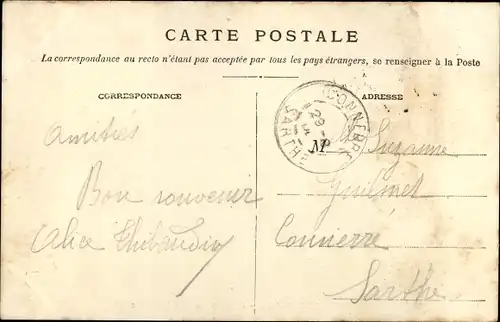 CARTE POSTALE
La correspondance au recto n'étant pas acceptée par tous les pays étrangers, se renseigner à la Poste
CORRESPONDANCE
ADRESSE
CONNERRE
29
SARTHE
Amitiés
Bon souvenir
Alice Thibaudin
M
Suzanne
Guilmet
Connerre
Sarthe